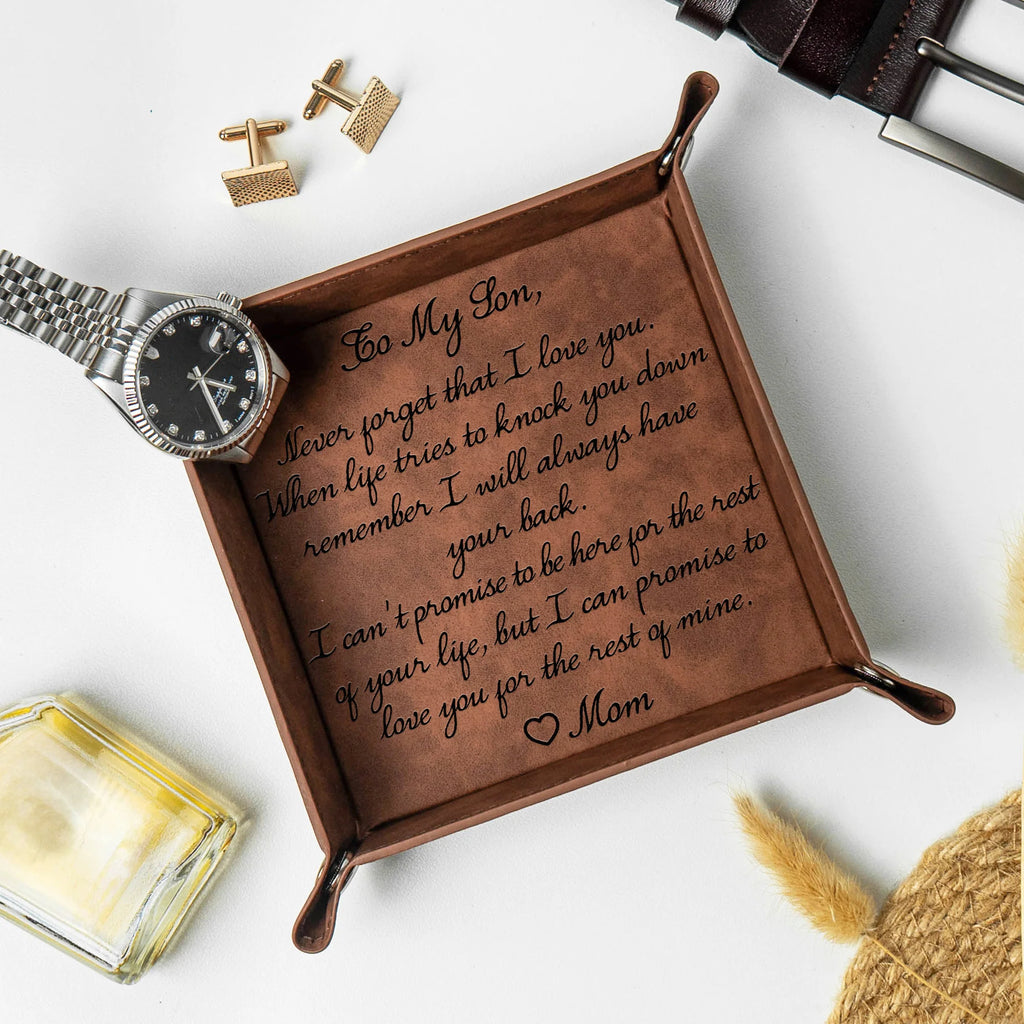 To My Son,
Never forget that I love you.
When life tries to knock you down
remember I will always have
your back.
I can't promise to be here for the rest
of your life, but I can promise to
love you for the rest of mine.
♡ Mom